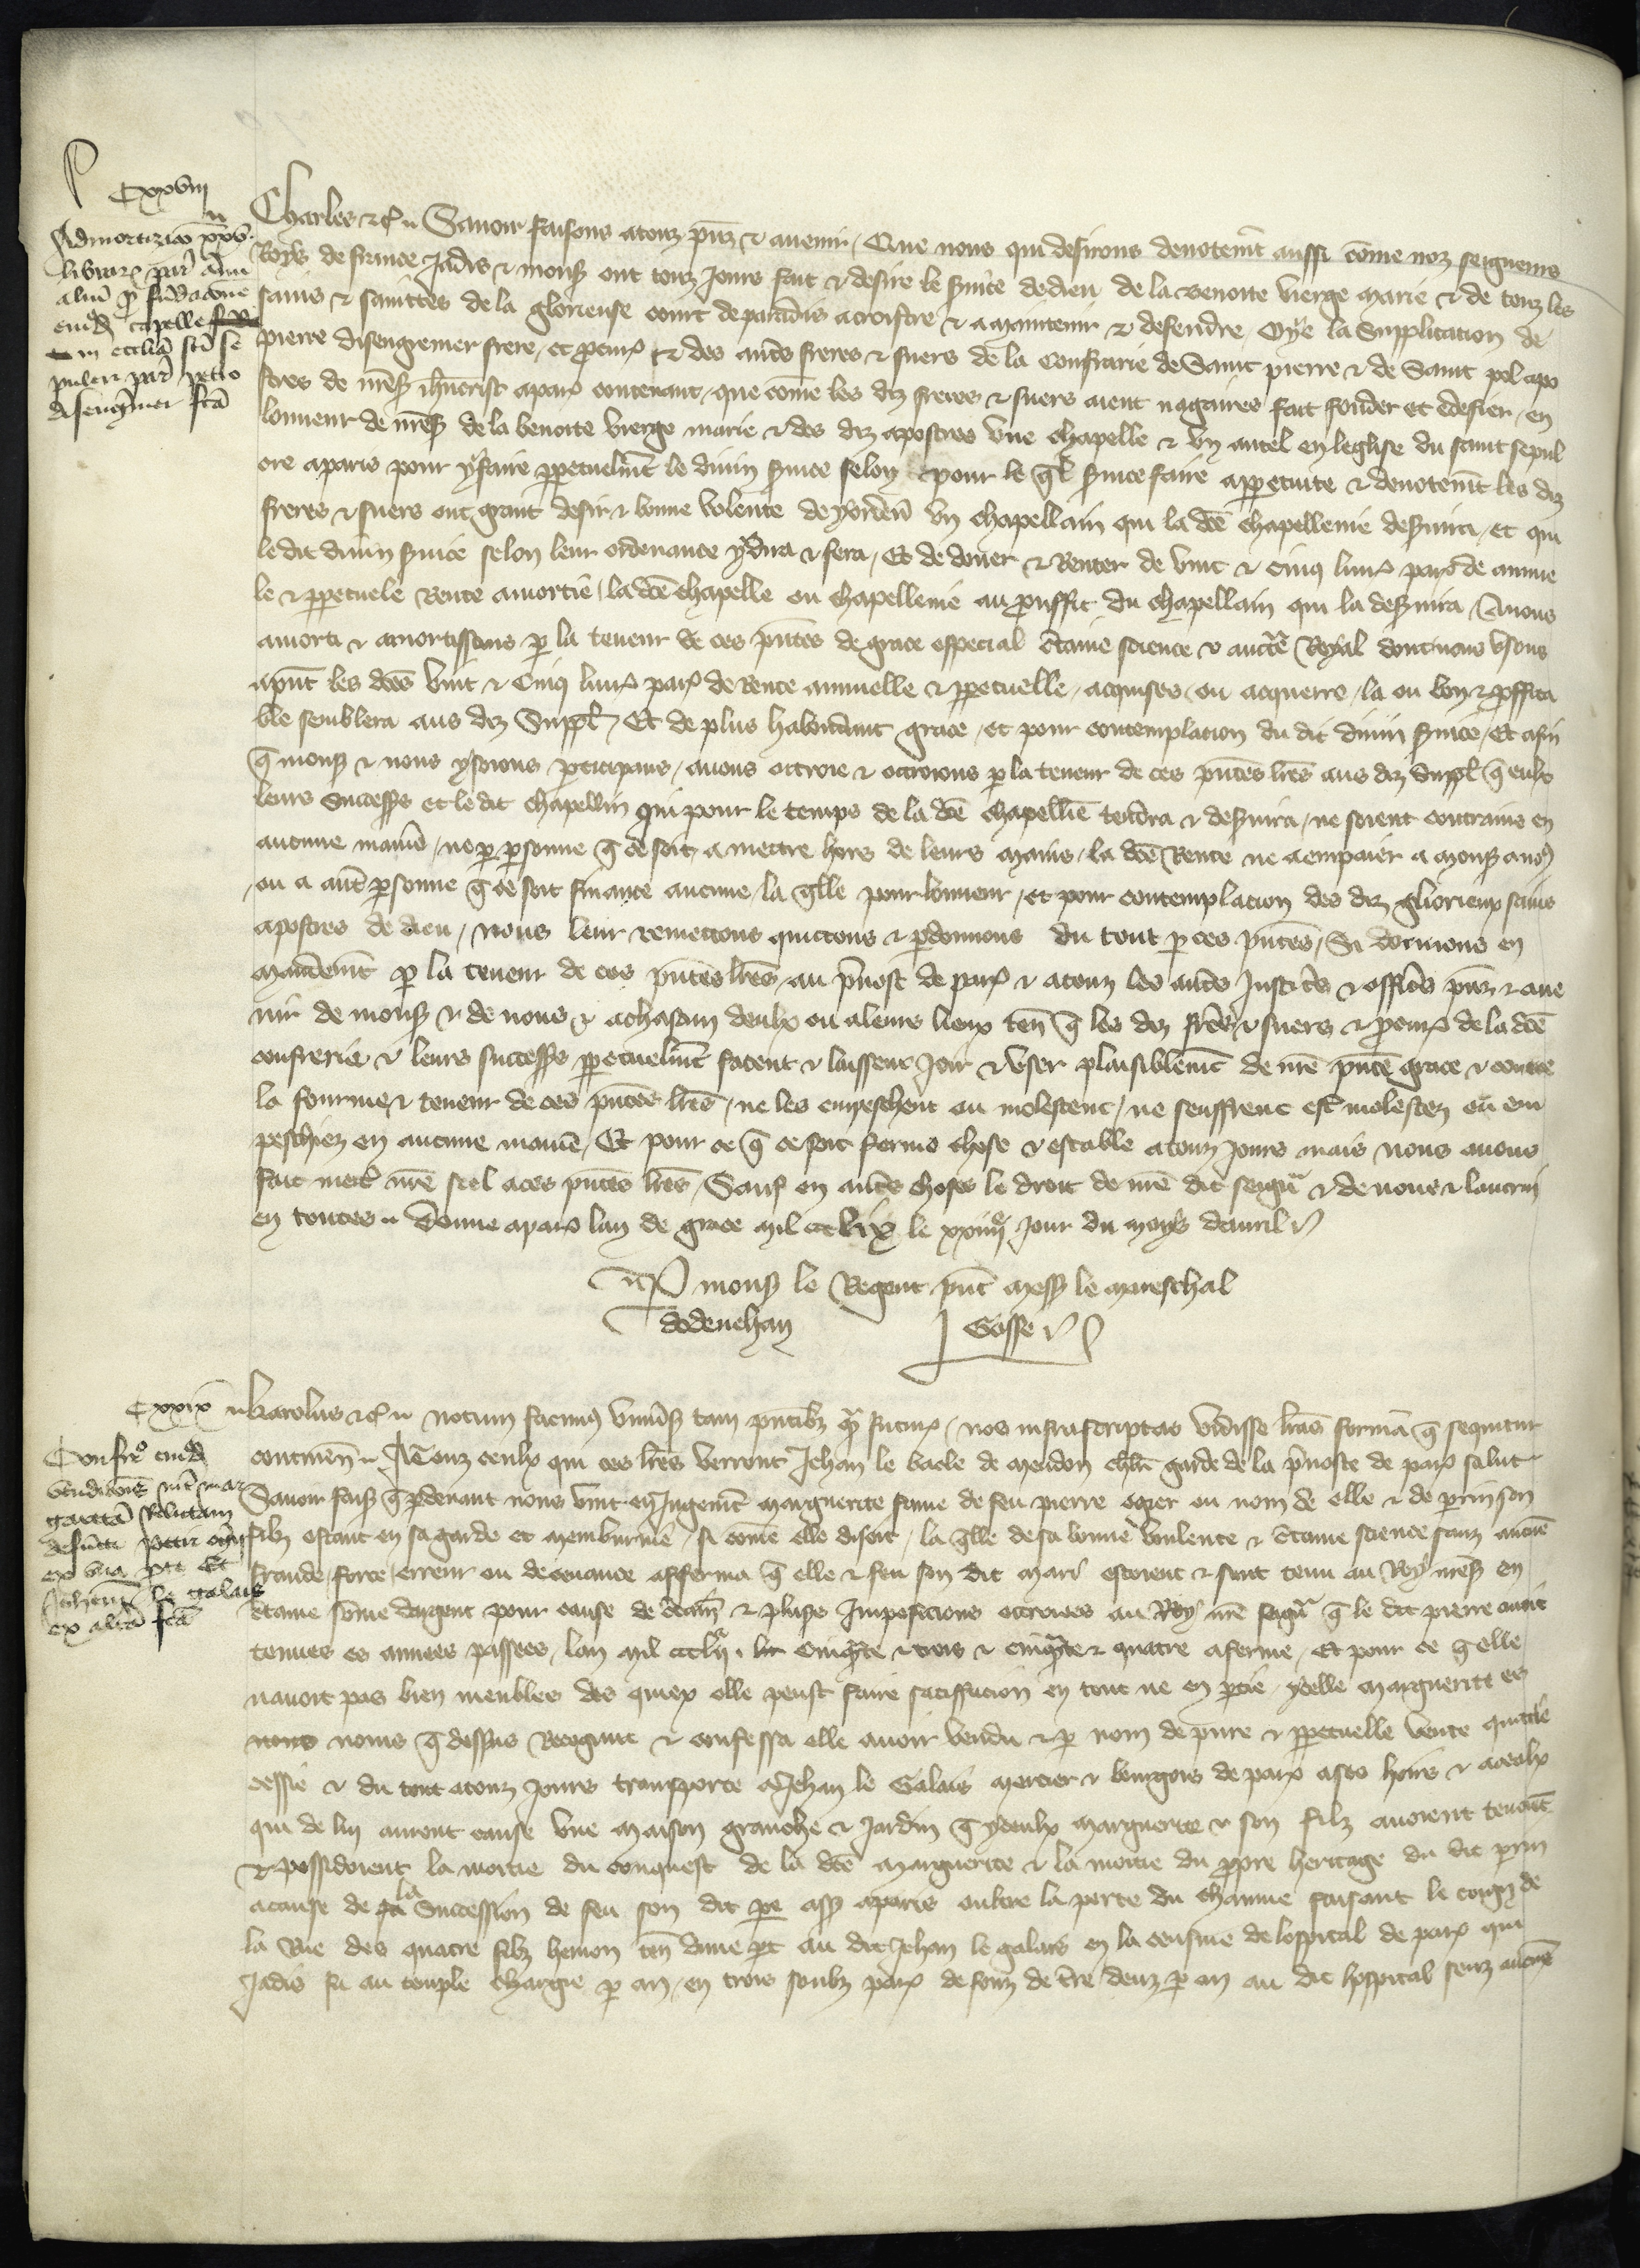 Cxxviii
Admortizacio xxv
librarum par. annui
alicui pro fundacione
cuiusdam capelle
in ecclesia sancti se
pulcri par. Petro
disengremer facta
Charles etc. Savoir faisons a touz presenz et avenir, Que nous qui desirons devotement aussi comme noz seigneurs
Roys de France jadis et monseigneur ont touz jours fait et desire le service de dieu de la benoite vierge marie et de touz les
sains et sainttes de la glorieuse court de paradis acroistre et a maintenir et defendre, Oye la Supplication de
pierre disengremer frere, et procureur et des autres freres et suers de la Confrarie de Saint pierre et de Saint pol apo
stres de nostre seigneur ihesucrist a paris contenant, que comme les diz freres et suers aient nagaires fait fonder et edefier, en
lonneur de nostre seigneur de la benoite vierge marie et des diz apostres une chapelle et un autel en leglise du saint sepul
cre a paris pour y faire perpetuelment le divin service selon et pour le quel service faire a perpetuite et devotement les diz
freres et suers ont grant desir et bonne volente de y ordener un chapellain qui la dicte chapellenie deservira, et qui
le dit divin service selon leur ordenance y dira et fera, Et de douer et Renter de vint et cinq livres parisis de annue
le et perpetuele Rente amortie, la dicte chapelle ou chapellenie au prouffit du chapellain qui la deservira, Avons
amorti et amortissons par la teneur de ces presentes de grace especial certaine science et auctorite Royal dont nous usons
a present les dictes vint et Cinq livres parisis de Rente annuelle et perpetuelle, acquises, ou acquerre, la ou bon et proffita
ble semblera aus diz Suppl. Et de plus habondant grace, et pour contemplacion du dit divin service, Et afin
que monseigneur et nous y soions participans, avons ottroie et ottroions par la teneur de ces presentes lettres aus diz suppl. que eulx
leurs successeurs et le dit chapellain qui pour le temps de la dicte chapellenie tendra et deservira, ne soient contrains en
aucune maniere, ne par personne que ce soit, a mettre hors de leurs mains, la dicte Rente ne a en paier a monseigneur a nous
ou a autre personne que ce soit finance aucune, la quelle pour lonneur, et pour contemplacion des diz glorieux sains
apostres de dieu, nous leur remettons quictons et perdonnons du tout par ces presentes, Si donnons en
mandement par la teneur de ces presentes lettres, au prevost de paris et a touz les autres Justiciers et officiers presenz et ave
nir de monseigneur et de nous et a chascun deulx ou a leurs lieux tenans que les diz freres et suers et procureur de la dicte
confrerie et leurs successeurs perpetuelment facent et laissent joir et user paisiblement de nostre presente grace et contre
la fourme et teneur de ces presentes lettres, ne les empeschent ou molestent, ne seuffrent estre molestez ou em
peschiez en aucune maniere, Et pour ce que ce soit ferme chose et estable a touz jours mais nous avons
fait mettre nostre seel a ces presentes lettres, Sauf en autres choses le droit de nostre dit seigneur et de nous et lautrui
en toutes. Donne a paris lan de grace mil ccc lix le xxiiije jour du moys davril
Par monseigneur le Regent present messire le mareschal
dodenehan J Gosse
Cxxix
Confirmacio cuiusdam
vendicionis inter mar
garetam Relictam
defuncti Petri ogier
ex una parte Et
Johannem le galais
ex altera facta
Karolus etc. notum facimus universis tam presentibus quam futuris, nos infrascriptas vidisse litteras formam que sequitur
continentes. A Touz ceulx qui ces lettres verront Jehan le bacle de meudon chevalier garde de la prevoste de paris salut
Savoir faisons que par devant nous vint en Jugement marguerite fame de feu pierre ogier ou nom de elle et de perrin son
filz estant en sa garde et mainburnie, si comme elle disoit, la quelle de sa bonne voulente et certaine science sanz aucune
fraude, force, erreur ou decevance afferma que elle et feu son dit mari estoient et sont tenu au Roy nostre seigneur en
certaine somme dargent pour cause de certain et pluseurs Imposicions ottroiees au Roy nostre seigneur que le dit pierre avoit
tenues es annees passees, lan mil ccc lij. cinquante et trois et cinquante et quatre a ferme, Et pour ce que elle
navoit pas bien meubles des quiex elle peust faire satiffacion en tout ne en partie, ycelle marguerite es
noms que dessus Recognut et confessa elle avoir vendu et par nom de pure et perpetuelle vente quictie
cessie et du tout a touz jours transporte a Jehan le Galais mercier et bourgois de paris a ses hoirs et a ceulx
qui de lui auront cause une maison granche et jardin que yceulx marguerite et son filz avoient tenoient
et possidoient la moitie du conquest de la dicte marguerite et la moitie du propre heritage du dit perrin
a cause de la Succession de feu son dit pere assis a paris oultre la porte du chaume faisant le coing de
la Rue des quatre filz hemon tenant dune part au dit Jehan le galais en la censive de lospital de paris qui
jadis fu au temple chargie par an, en trois soulz parisis de fons de terre deuz par an au dit hospital senz aucune